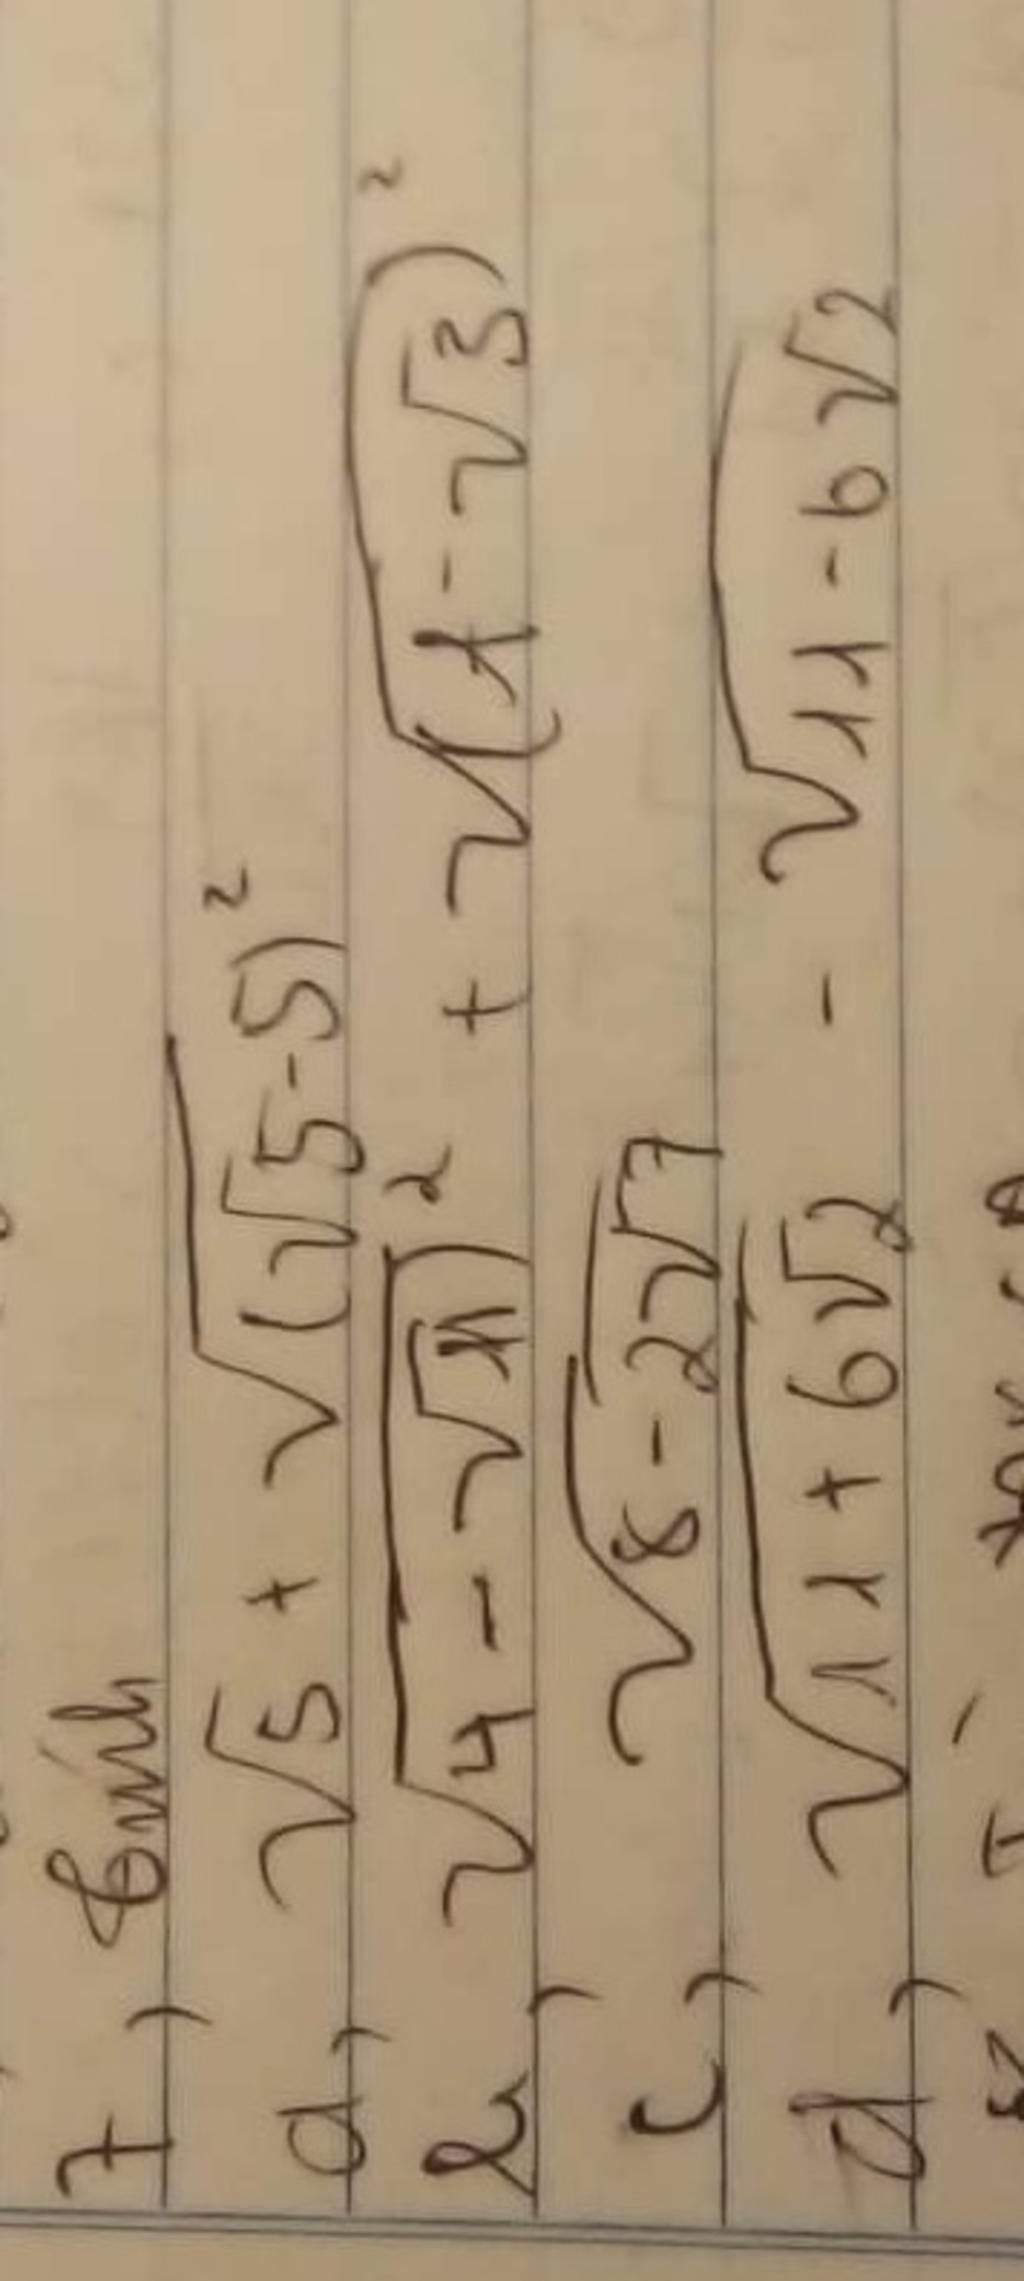 7) Tính
a, √5 + √(√5-5)²
b, √(4 - √11)² + √(1 - √3)²
c, √8 - 2√7
d, √11 + 6√2 - √11 - 6√2